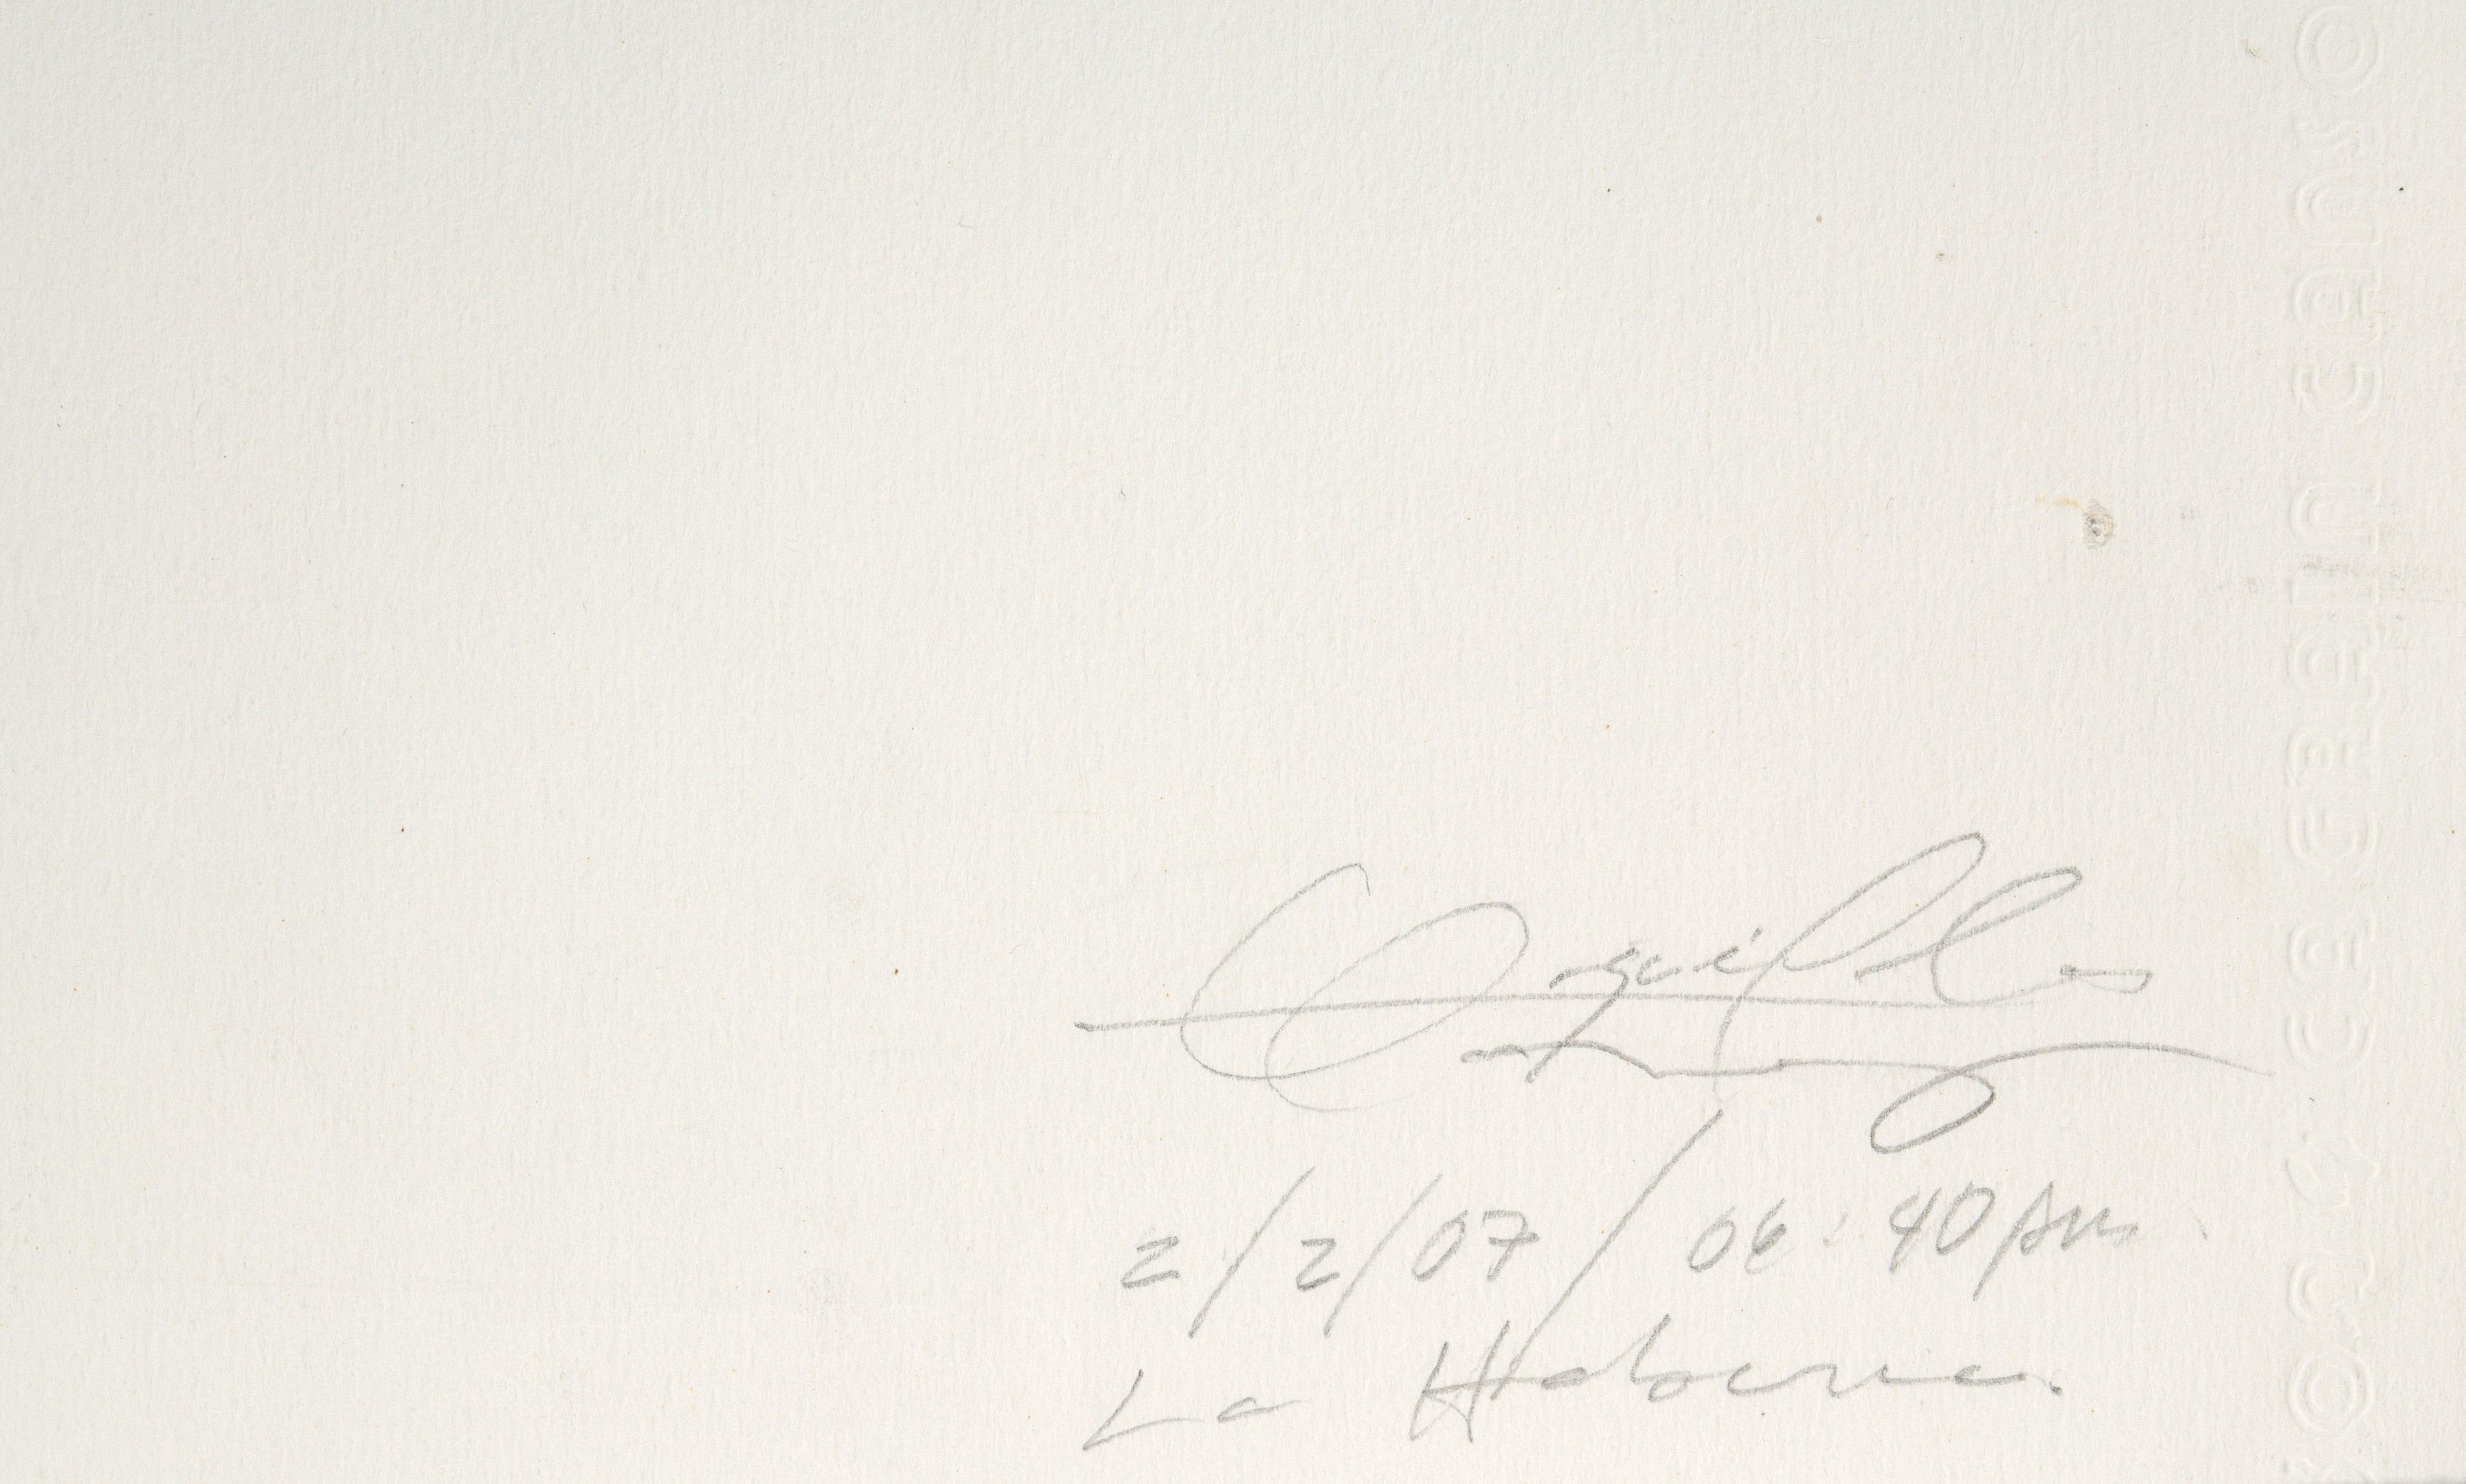 2/2/07/ 06:40 AM
La Habana.
"CA" GRAIN CANSON